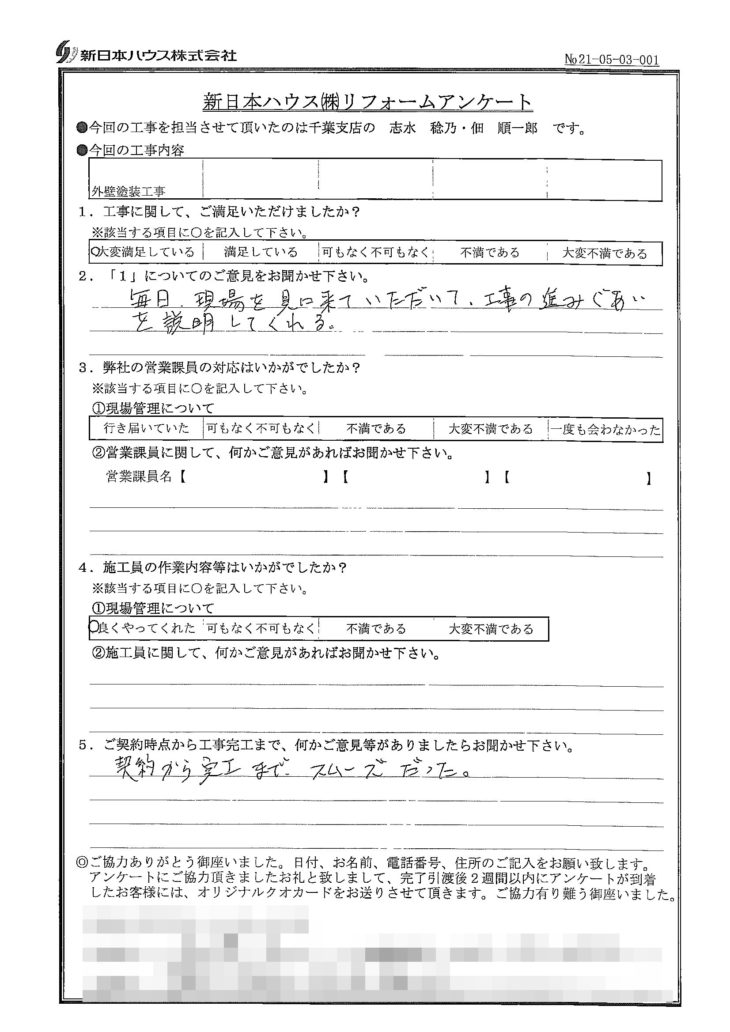 新日本ハウス株式会社
№21-05-03-001
新日本ハウス㈱リフォームアンケート
●今回の工事を担当させて頂いたのは千葉支店の　志水　稔乃・佃　順一郎　です。
●今回の工事内容
外壁塗装工事
1．工事に関して、ご満足いただけましたか？
※該当する項目に○を記入して下さい。
○大変満足している　満足している　可もなく不可もなく　不満である　大変不満である
2．「1」についてのご意見をお聞かせ下さい。
毎日、現場を見に来ていただいて、工事の進みぐあい
を説明してくれる。
3．弊社の営業課員の対応はいかがでしたか？
※該当する項目に○を記入して下さい。
①現場管理について
行き届いていた　可もなく不可もなく　不満である　大変不満である　一度も会わなかった
②営業課員に関して、何かご意見があればお聞かせ下さい。
営業課員名【　　　】【　　　】【　　　】
4．施工員の作業内容等はいかがでしたか？
※該当する項目に○を記入して下さい。
①現場管理について
○良くやってくれた　可もなく不可もなく　不満である　大変不満である
②施工員に関して、何かご意見があればお聞かせ下さい。
5．ご契約時点から工事完工まで、何かご意見等がありましたらお聞かせ下さい。
契約から完工まで　スムーズだった。
◎ご協力ありがとう御座いました。日付、お名前、電話番号、住所のご記入をお願い致します。
アンケートにご協力頂きましたお礼と致しまして、完了引渡後2週間以内にアンケートが到着
したお客様には、オリジナルクオカードをお送りさせて頂きます。ご協力有り難う御座いました。